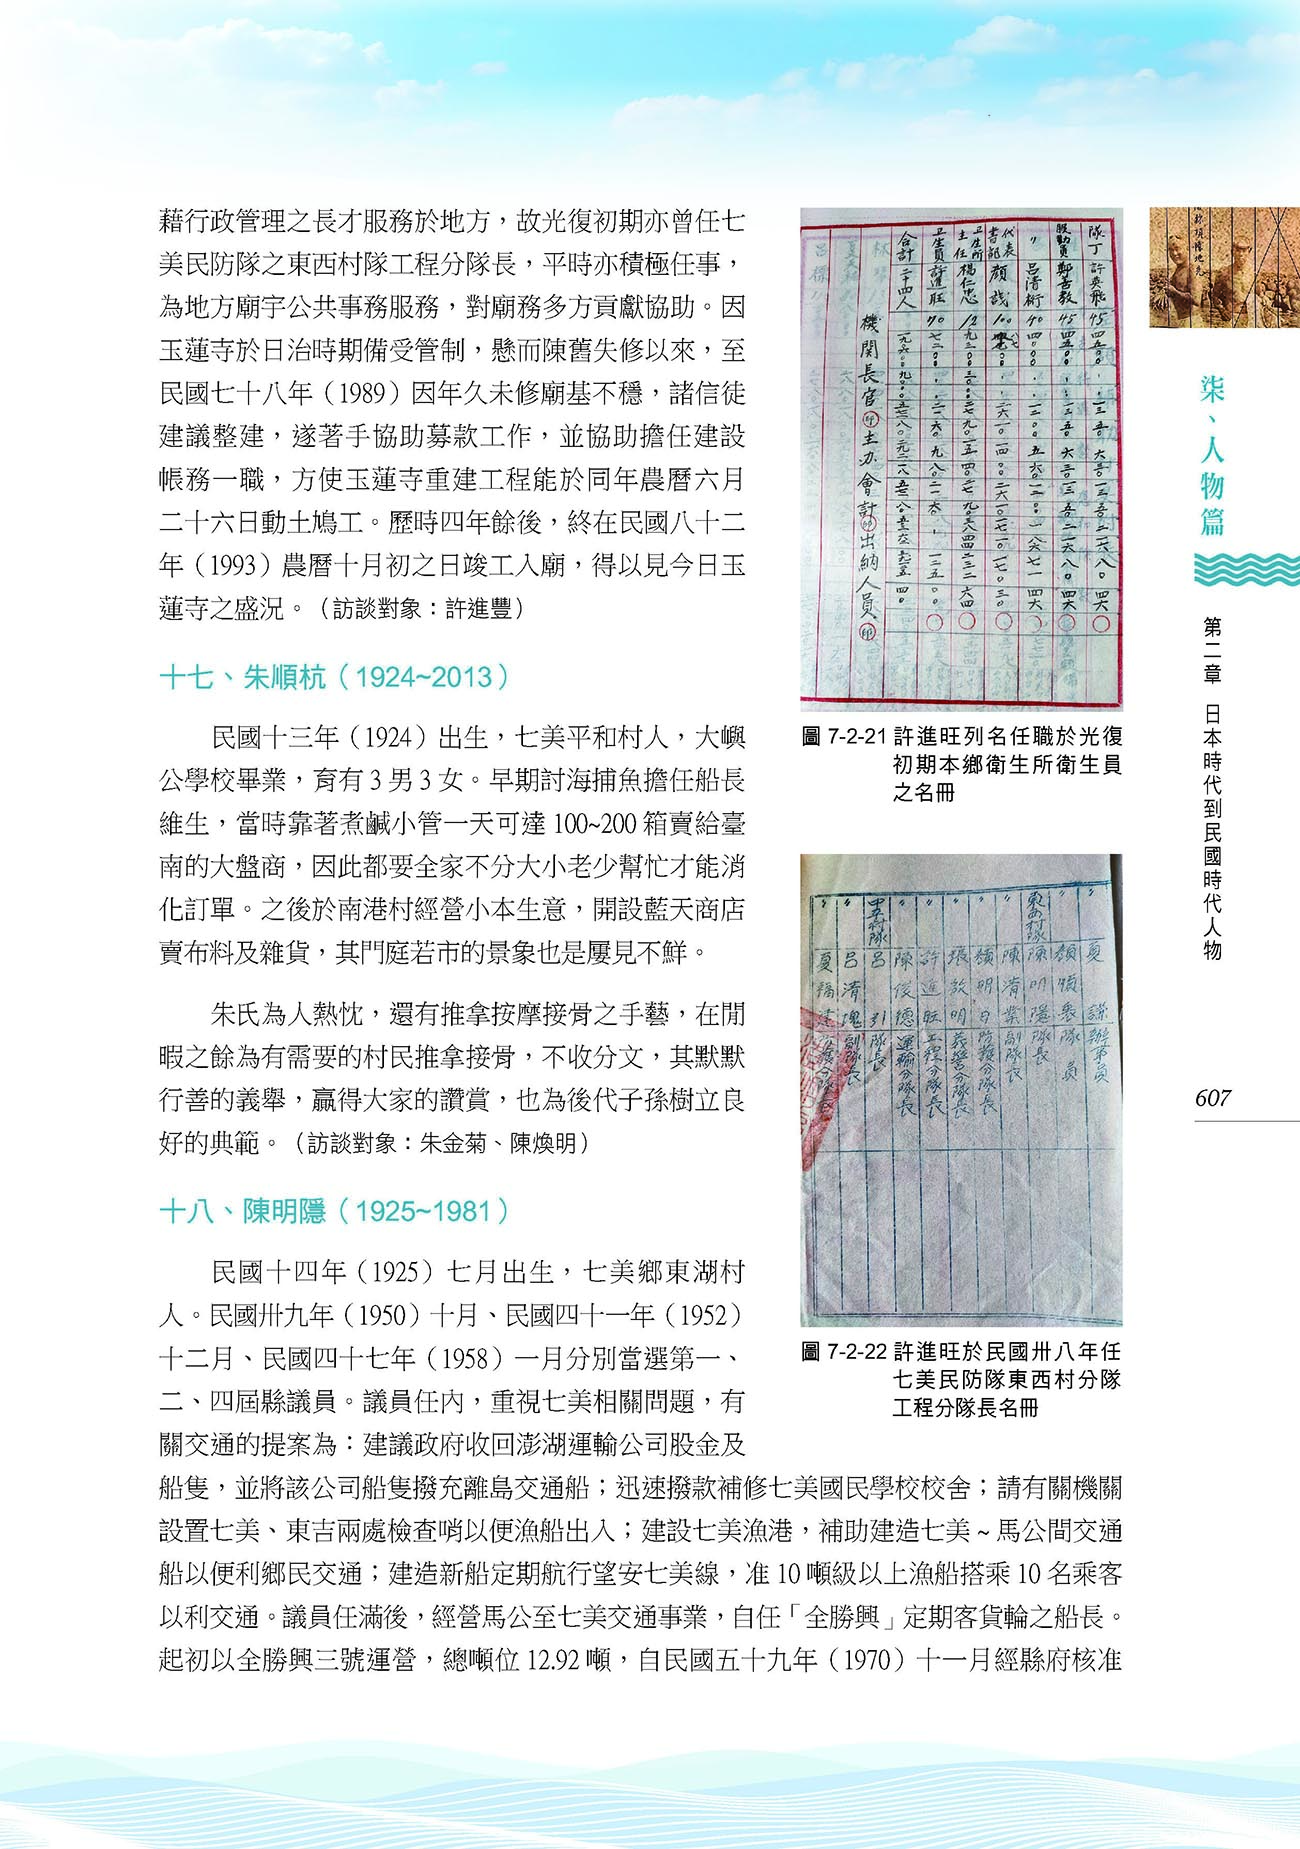 藉行政管理之長才服務於地方，故光復初期亦曾任七
美民防隊之東西村隊工程分隊長，平時亦積極任事，
為地方廟宇公共事務服務，對廟務多方貢獻協助。因
玉蓮寺於日治時期備受管制，懸而陳舊失修以來，至
民國七十八年（1989）因年久未修廟基不穩，諸信徒
建議整建，遂著手協助募款工作，並協助擔任建設
帳務一職，方使玉蓮寺重建工程能於同年農曆六月
二十六日動土鳩工。歷時四年餘後，終在民國八十二
年（1993）農曆十月初之日竣工入廟，得以見今日玉
蓮寺之盛況。（訪談對象：許進豐）
十七、朱順杭（1924~2013）
民國十三年（1924）出生，七美平和村人，大嶼
公學校畢業，育有3男3女。早期討海捕魚擔任船長
維生，當時靠著煮鹹小管一天可達100~200箱賣給臺
南的大盤商，因此都要全家不分大小老少幫忙才能消
化訂單。之後於南港村經營小本生意，開設藍天商店
賣布料及雜貨，其門庭若市的景象也是屢見不鮮。
朱氏為人熱忱，還有推拿按摩接骨之手藝，在閒
暇之餘為有需要的村民推拿接骨，不收分文，其默默
行善的義舉，贏得大家的讚賞，也為後代子孫樹立良
好的典範。（訪談對象：朱金菊、陳煥明）
十八、陳明隱（1925~1981）
民國十四年（1925）七月出生，七美鄉東湖村
人。民國卅九年（1950）十月、民國四十一年（1952）
十二月、民國四十七年（1958）一月分別當選第一、
二、四屆縣議員。議員任內，重視七美相關問題，有
關交通的提案為：建議政府收回澎湖運輸公司股金及
船隻，並將該公司船隻撥充離島交通船；迅速撥款補修七美國民學校校舍；請有關機關
設置七美、東吉兩處檢查哨以便漁船出入；建設七美漁港，補助建造七美~馬公間交通
船以便利鄉民交通；建造新船定期航行望安七美線，准10噸級以上漁船搭乘10名乘客
以利交通。議員任滿後，經營馬公至七美交通事業，自任「全勝興」定期客貨輪之船長。
起初以全勝興三號運營，總噸位12.92噸，自民國五十九年（1970）十一月經縣府核准
隊丁 許英飛
服勤員 鄭善教
〃 呂清術
代表書記 顏謙
衛生所主任 楊仁忠
衛生員 許進旺
合計 二十四人
機關長官 印 主办會計 印 出納人員 印
圖 7-2-21 許進旺列名任職於光復
初期本鄉衛生所衛生員
之名冊
夏謀 辦事員
〃 顏順 隊員
東西村隊 陳明隱 隊長
〃 陳清業 副隊長
〃 顏明日 防護分隊長
〃 張敦明 義警分隊長
〃 許進旺 工程分隊長
〃 陳俊德 運輸分隊長
中平村隊 呂引 隊長
〃 呂清瑰 副隊長
〃 夏福 分隊長
圖 7-2-22 許進旺於民國卅八年任
七美民防隊東西村分隊
工程分隊長名冊
柒、人物篇
第二章 日本時代到民國時代人物
607